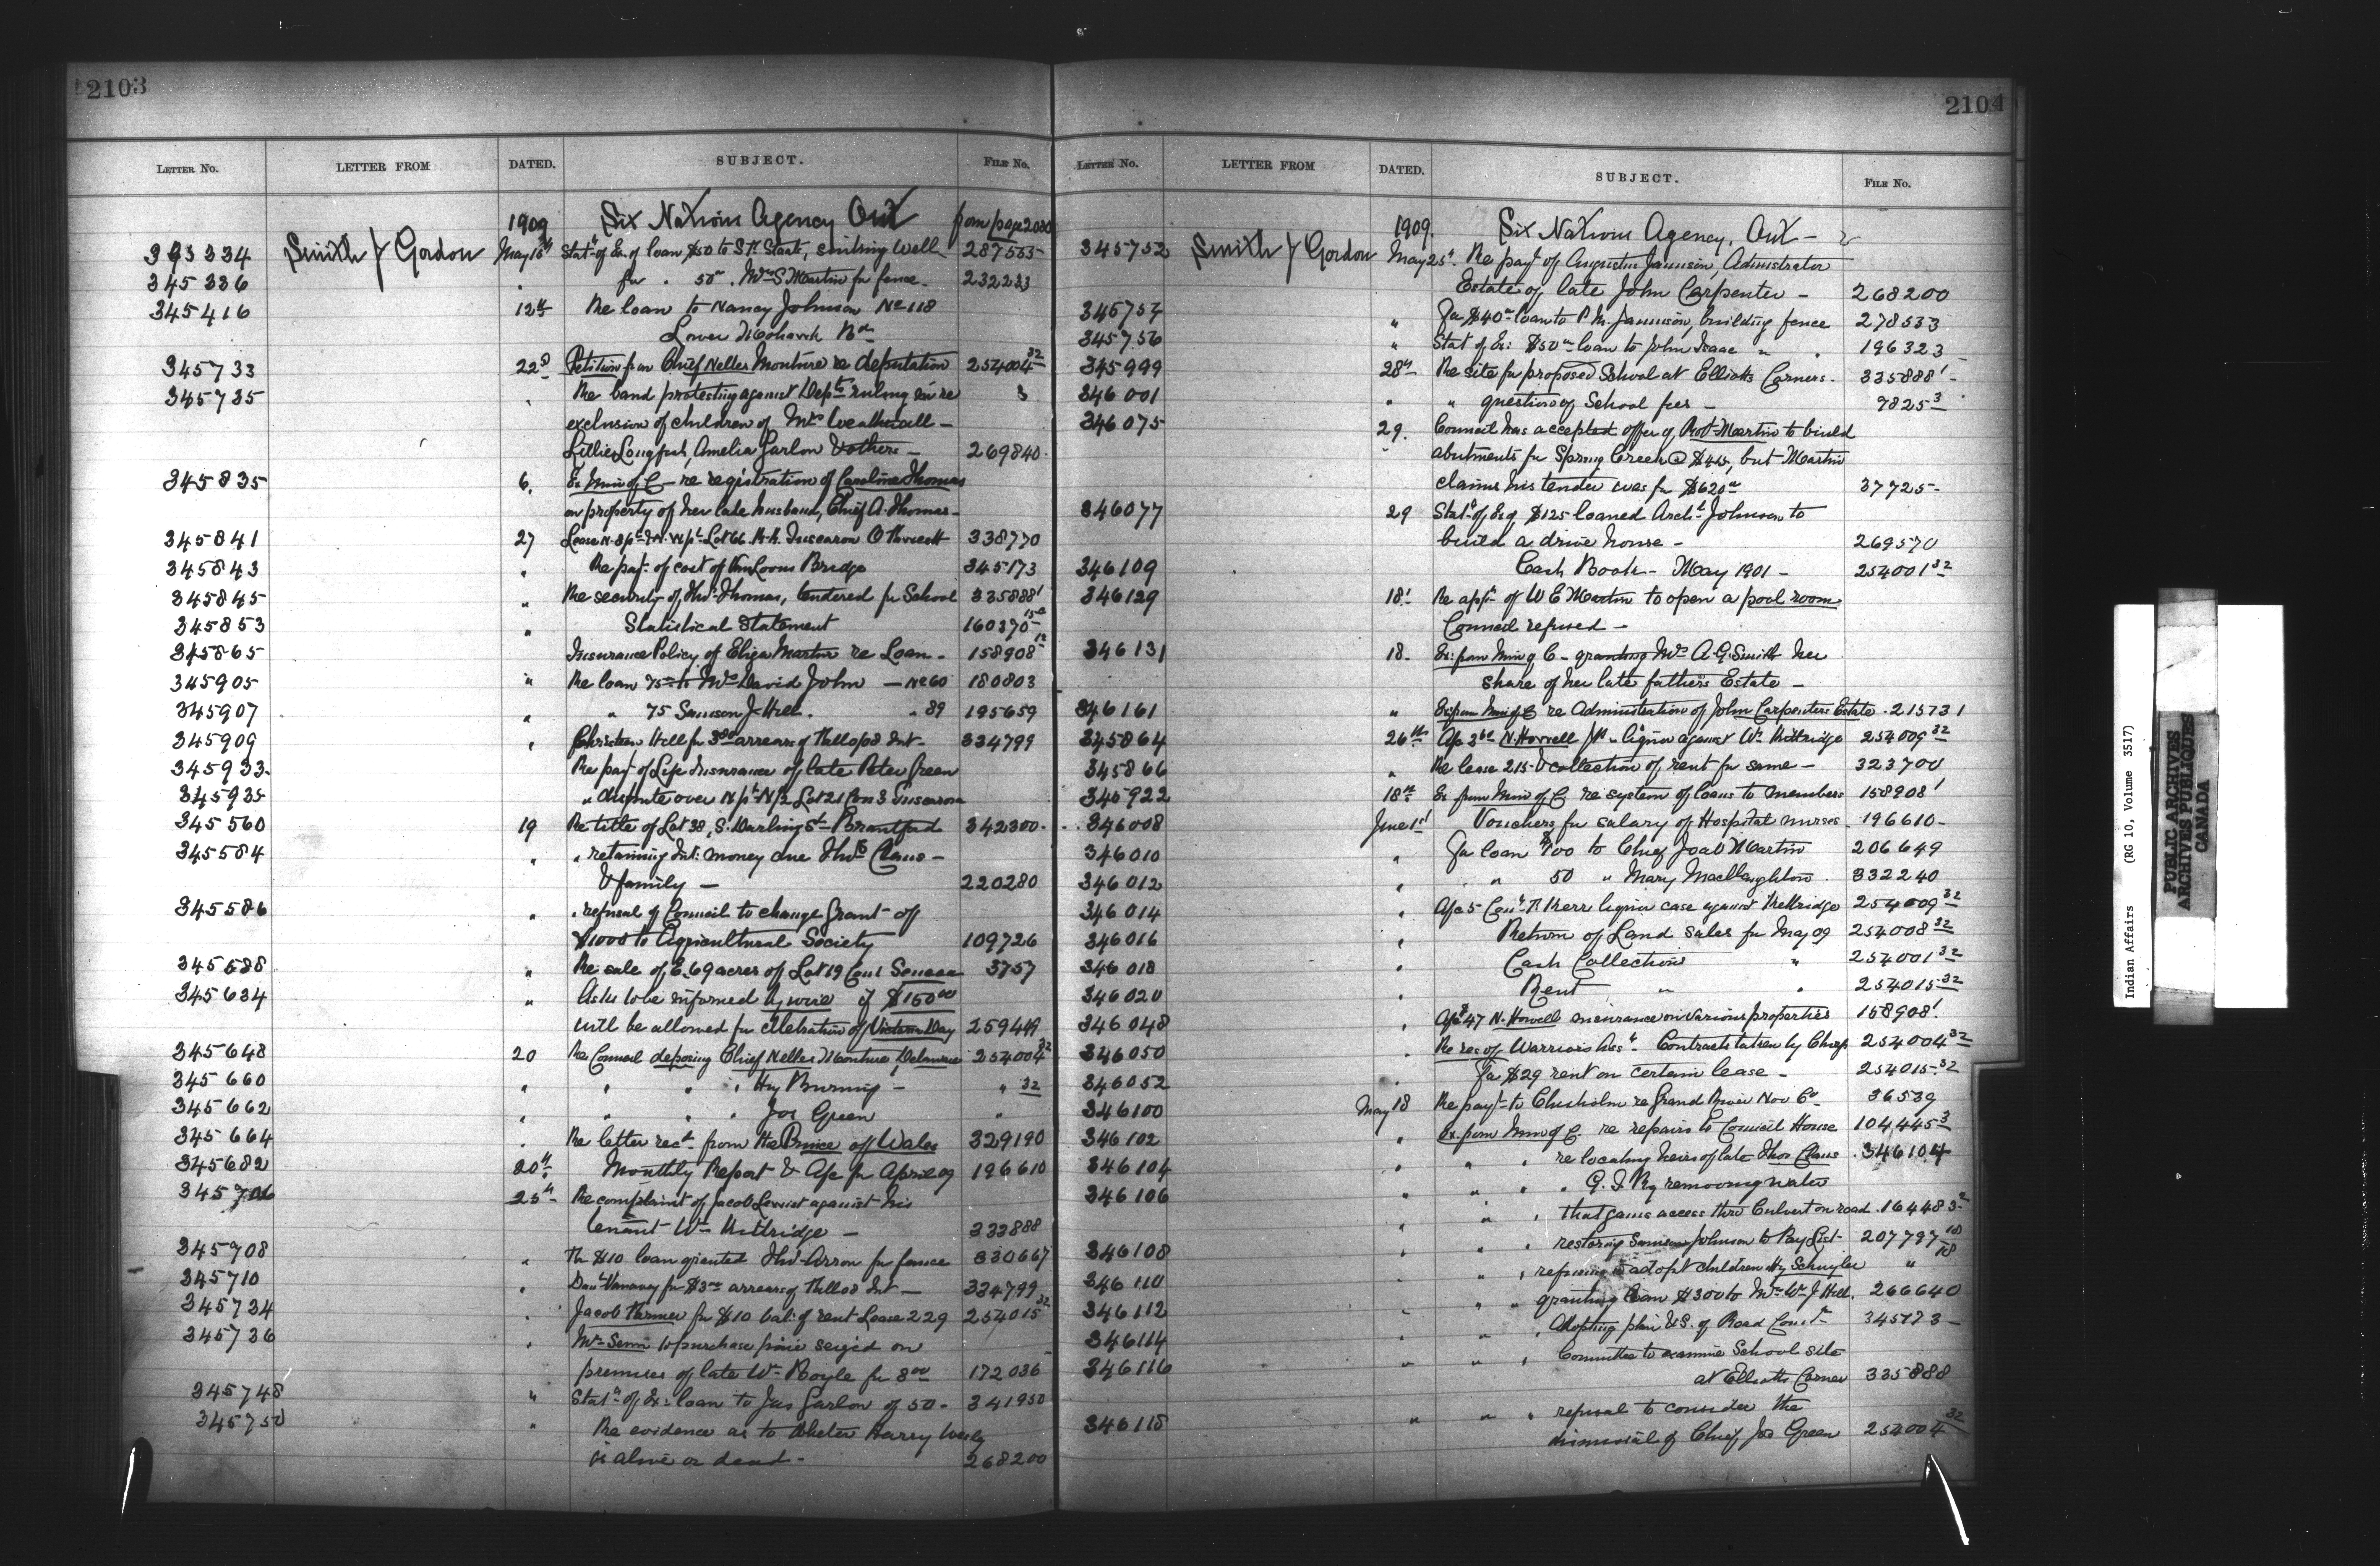 2103
LETTER NO. LETTER FROM DATED. SUBJECT. FILE NO.
1909 Six Nations Agency Ont from page 2080
345334 Smith J Gordon May 18th Stat of Ex. of loan $50 to S. Start, sinking well 287555
345336 " for " 50 " Mrs S Martin for fence 232233
345416 12th Re loan to Nancy Johnson No 118
Lower Mohawk Bd
345733 22d Petition from Chief Nelles Monture re deputation 254004 32
345735 " Re band protesting against Dept ruling in re 3
exclusion of children of Mrs
Lillie Longfish, Amelia Garlon & others — 269840
345835 6. Ex Min of C — re registration of Caroline Thomas
on property of her late husband, Chief A. Thomas —
345841 27 Lease N. Lot 66 Tuscarora 338770
345843 " Re payt of cost of VanLoons Bridge 345173
345845 " Re security of Thos Thomas, tendered for School 335888 1
345853 " Statistical Statement 160370
345865 Insurance Policy of Eliza Martin re Loan — 158908 12
345905 " Re loan 75 to Mrs David John — No 60 180803
345907 " " 75 Samson J Hill " 89 195659
345909 " Christian Hill for 3 00 arrears of Int 334799
345933 Re payt of Life Insurance of late Peter Green
345935 " dispute over N pt N/2 Lot 21 Con 3 Tuscarora
345560 19 Re title of Lot 38, S. Darling St Brantford 342300
345584 " " retaining Int: money due Thos Claus —
& family — 220280
345586 " " refusal of Council to change Grant of
$1000 to Agricultural Society 109726
345588 " Re sale of E. 69 acres of Lot 19 Con 1 Seneca 3757
345634 " Asks to be informed by wire if $150 00
will be allowed for celebration of Victoria Day 259449
345648 20 Re Council deposing Chief Nelles Monture, Delaware 254004 32
345660 " " " " Hy Burning — " 32
345662 " " " " Jos Green "
345664 " Re letter recd from the Prince of Wales 329190
345682 20th Monthly Report & A/c for April 09 196610
345706 25th Re complaint of Jacob against his
tenant Wm Kittridge — 333888
345708 " $10 loan granted Thos for fence 330667
345710 " Danl Vanevery for $3 00 arrears of Int — 334799
345734 " Jacob for $10 bal: of rent Lease 229 254015 32
345736 " Mr to purchase pine seized on
premises of late Wm Boyle for 8 00 172036
345748 " Stat of Ex: loan to Jas Garlon of 50 — 341950
345750 " Re evidence as to whether Harry
is alive or dead — 268200
2104
LETTER NO. LETTER FROM DATED. SUBJECT. FILE NO.
1909. Six Nations Agency, Ont —
345752 Smith J Gordon May 25th. Re payt of Augustus Jamison, Administrator
Estate of late John Carpenter — 268200
345754 " For $40 loan to P. M. Jamieson, building fence 278533
345756 " Stat of Ex: $50 loan to John Isaac " " 196323
345999 28th Re site for proposed School at Elliotts Corners — 335888 1
346001 " " question of School fees — 7825 3
346075 29. Council has accepted offer of Robt Martin to build
abutments for Spring Creek @ $415, but Martin
claims his tender was for $620 37725
346077 29 Stat of Ex of $125 loaned Archd Johnson to
build a drive house — 269570
346109 Cash Book — May 1901 — 254001 32
346129 18 Re appn of W E Martin to open a pool room
Council refused —
346131 18 Ex: from Min of C — granting Mrs A. G. Smith her
share of her late father's Estate —
346161 " Ex from Min of C re Administration of John Carpenters Estate 215731
345864 26th A/c N. Howell liquor against Wm Kittridge 254009 32
345866 " Re lease 215 & collection of rent for same — 323700
345922 18th Ex from Min of C. re system of loans to members 158908 1
346008 June 1st Vouchers for salary of Hospital nurses 196610
346010 " For loan $100 to Chief Joab Martin 206649
346012 " " 50 " Mary MacNaughton 332240
346014 " A/c 5 Kerr liquor case against Kittridge 254009 32
346016 " Return of Land sales for May 09 254008 32
346018 " Cash Collections " 254001 32
346020 " Rent " " 254015 32
346048 " A/c $47 N. Howell insurance on various properties 158908 1
346050 " Re res of Warriors Assn Contracts taken by Chiefs 254004 32
346052 " For $29 rent on certain lease — 254015 32
346100 May 18 Re payt to Chisholm re Grand River Nav Co 36539
346102 " Ex. from Min of C. re repairs to Council House 104445 3
346104 " " " re locating heirs of late Thos Claus 346104
346106 " " " " G. T. Ry removing water
" " " that gains access thro Culvert on road 164483 2
346108 " " " restoring Samson Johnson to Pay List 207797 18
346110 " " " refusing to adopt children Hy Schuyler " 18
346112 " " " granting loan $300 to Mrs Wm J Hill 266640
346114 " " " Adopting plan & S. of Road 345173
346116 " " " Committee to examine School site
at Elliotts Corner 335888
346118 " " " refusal to consider the
dismissal of Chief Jos Green 254004 32
Indian Affairs (RG 10, Volume 3517)
PUBLIC ARCHIVES
ARCHIVES PUBLIQUES
CANADA